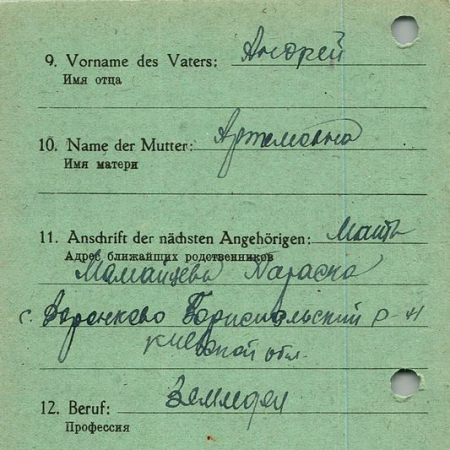 9. Vorname des Vaters: Андрей
Имя отца
10. Name der Mutter: Артемовна
Имя матери
11. Anschrift der nächsten Angehörigen: Мать
Адрес ближайших родственников
Параска
с. Вороньково Бориспольский р-н
киевской обл.
12. Beruf: Земледел
Профессия